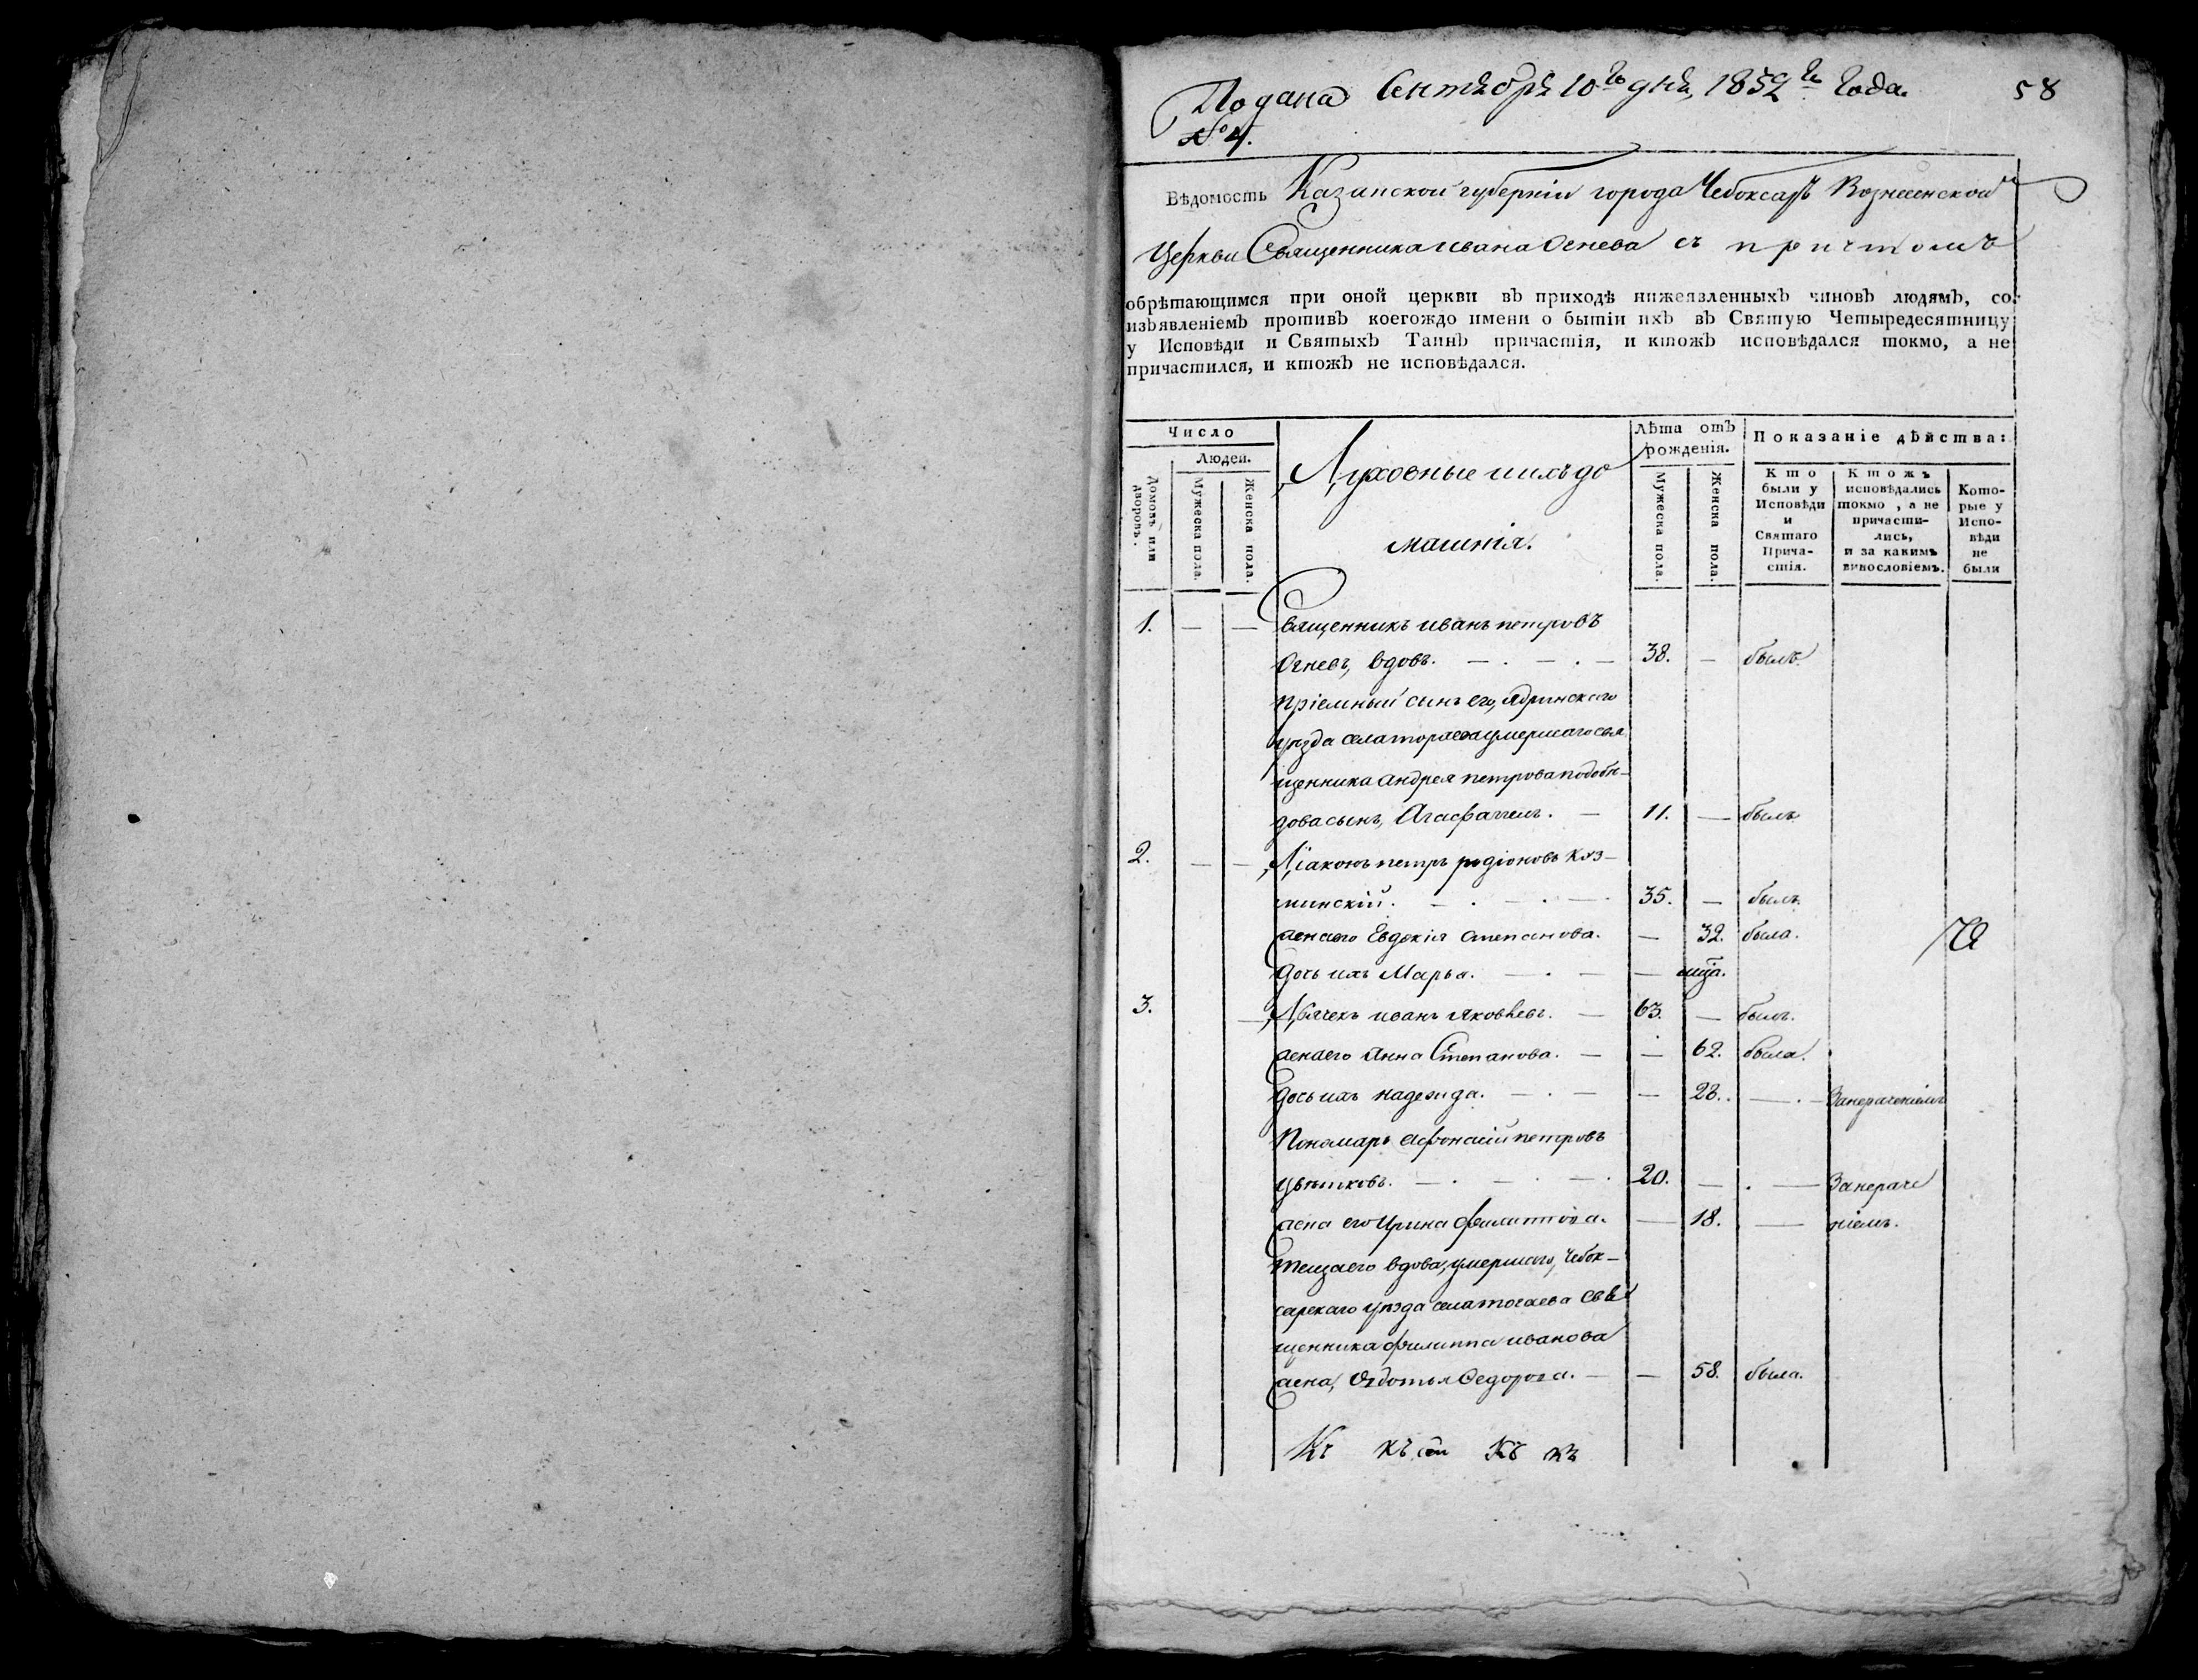 Подана Сентября 10го дня, 1852го Года.
58
№ 4.
Вѣдомость Казанской губерніи города Чебоксаръ Вознесенской
Церкви Священника Ивана Огнева съ причтомъ
обрѣтающимся при оной церкви въ приходѣ нижеявленныхъ чиновъ людямъ, со
изъявленіемъ противъ коегождо имени о бытіи ихъ въ Святую Четыредесятницу
у Исповѣди и Святыхъ Таинъ причастія, и ктожъ исповѣдался токмо, а не
причастился, и ктожъ не исповѣдался.
Число
Людей.
Домовъ или дворовъ.
Мужеска пола.
Женска пола.
Духовные и ихъ до
машнія.
Лѣта отъ
рожденія.
Мужеска пола.
Женска пола.
Показаніе дѣйства:
Кто
были у
Исповѣди
и
Святаго
Прича-
стія.
Ктожъ
исповѣдались
токмо, а не
причасти-
лись,
и за какимъ
винословіемъ.
Кото-
рые у
Испо-
вѣди
не
были
1. — — Священникъ иванъ петровъ
Огневъ, вдовъ. — 38. — былъ.
пріемный сынъ его, Ядринскаго
уѣзда села умершаго свя
щенника андрея петрова
сынъ, — 11. — былъ
2. — — Діаконъ петръ родіоновъ Каз-
минскій. — 35. — былъ
жена его Евдокія степанова. — 32. была.
дочь ихъ Марья. — —
3. — Дьячекъ иванъ яковлевъ. — 63. — былъ.
жена его Анна Степанова. — — 62. была.
дочь ихъ надежда. — — 28. — Занераченіемъ
Пономарь афонасій петровъ
цвѣтковъ. — 20. — — Занераче
жена его Ирина филиппова. — 18. — ніемъ.
теща его вдова, умершаго, Чебок-
сарскаго уѣзда села свя
щенника филиппа иванова
жена, Авдотья Федорова. — — 58. была.